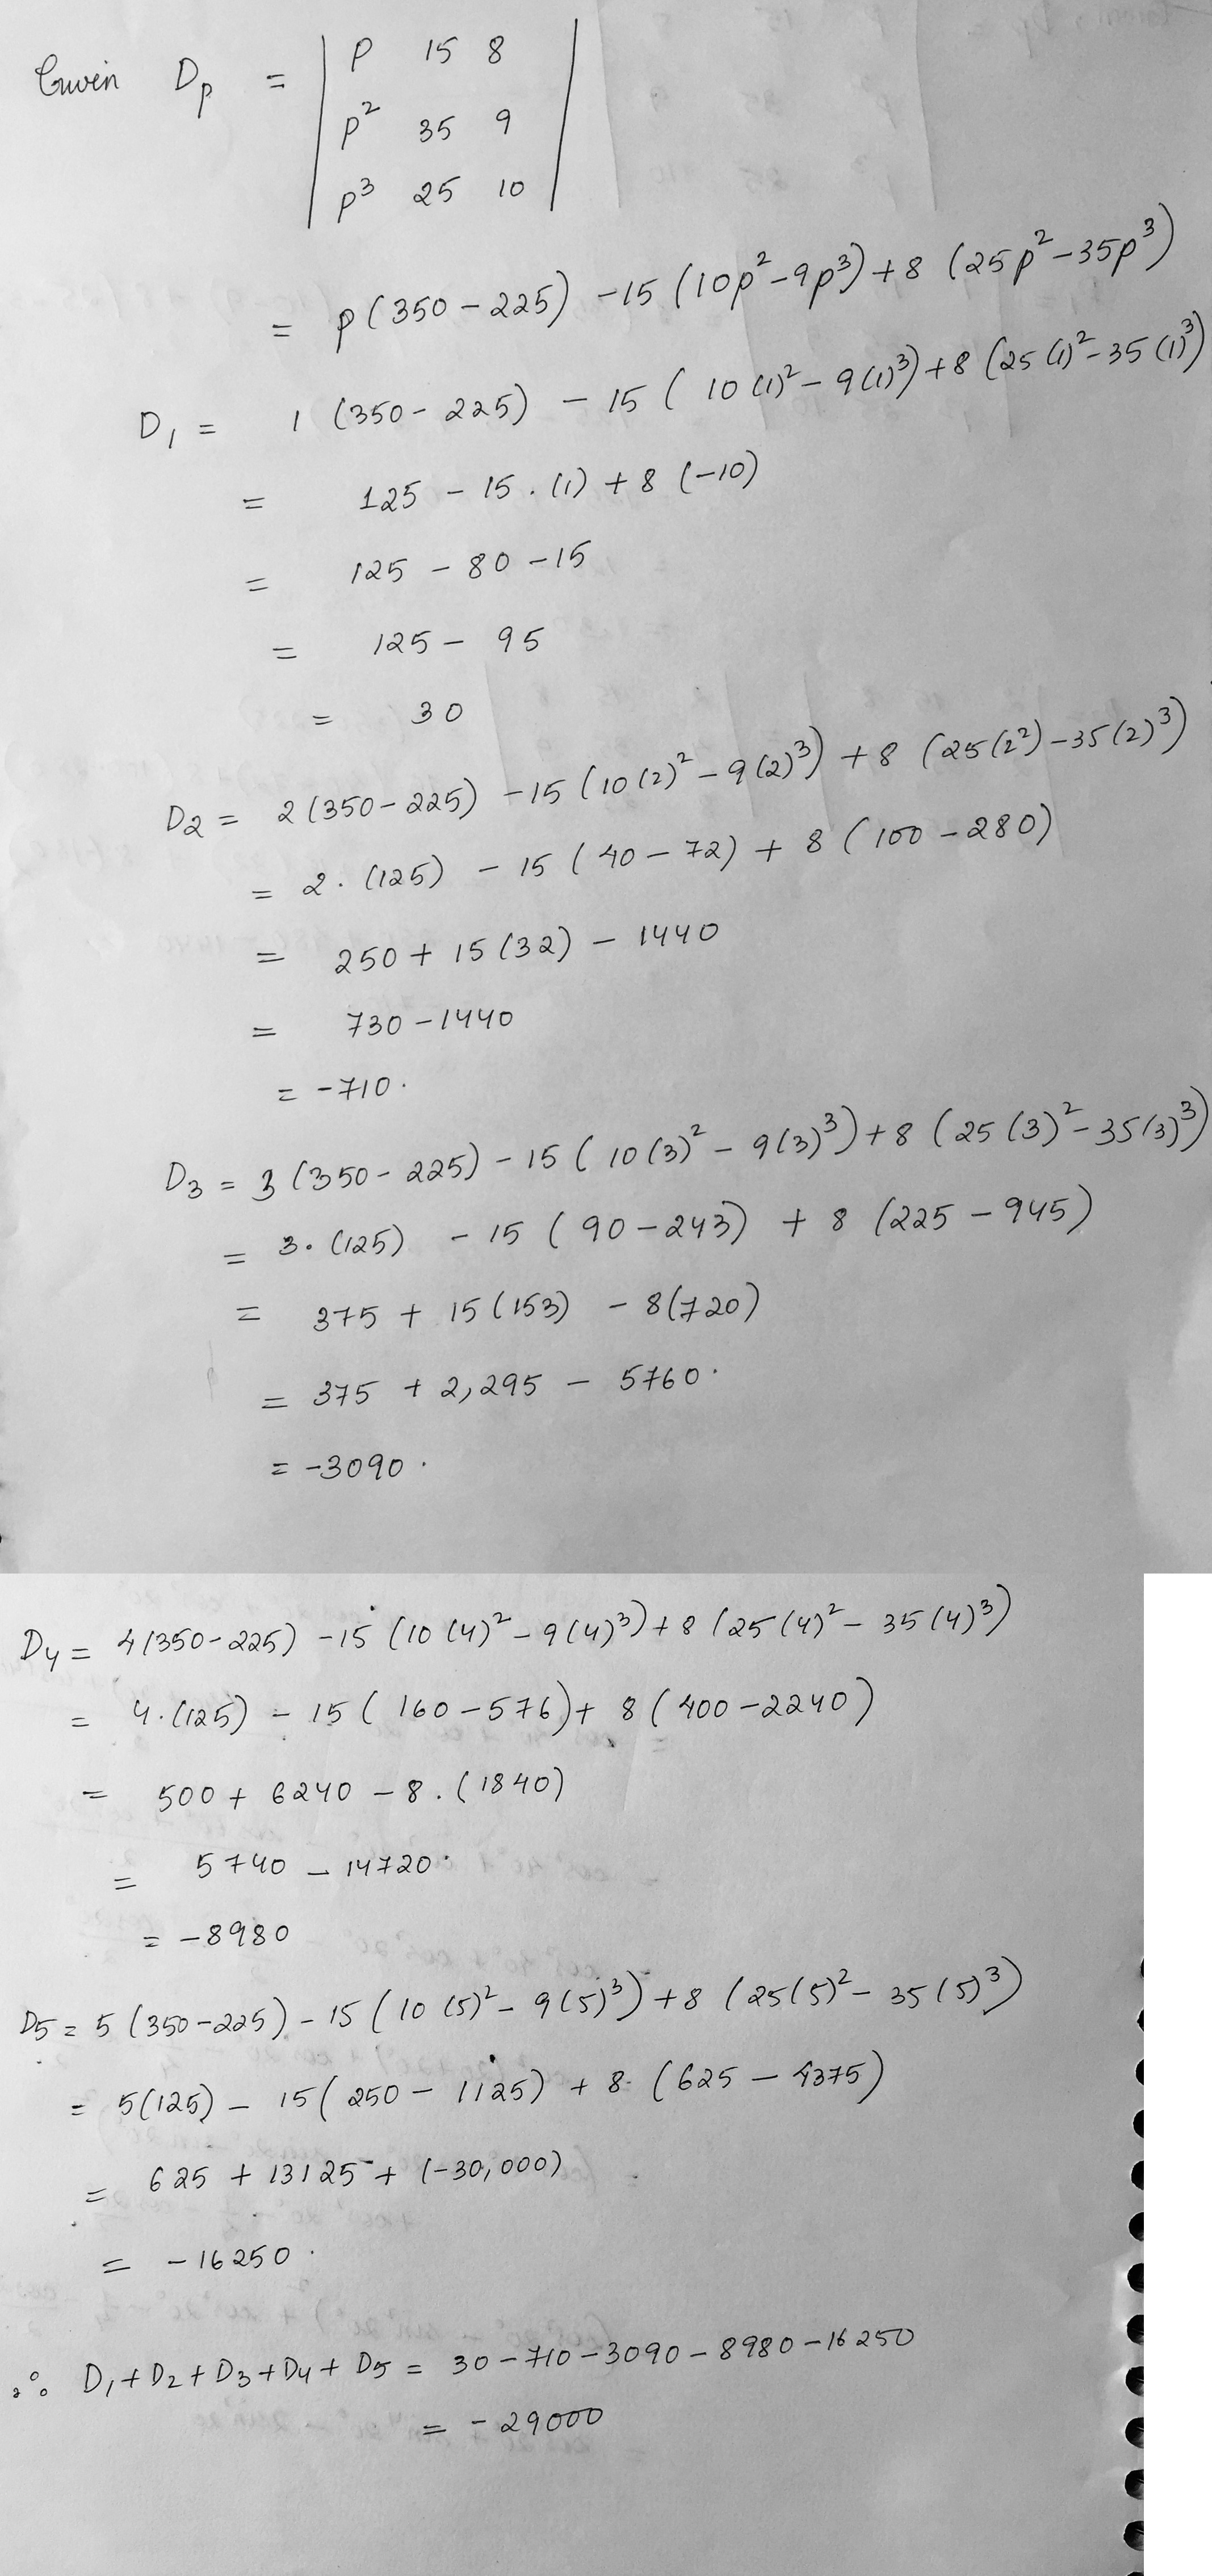 Given Dp = | p 15 8 |
| p² 35 9 |
| p³ 25 10 |
= p(350 - 225) - 15 (10p² - 9p³) + 8 (25p² - 35p³)
D₁ = 1 (350 - 225) - 15 ( 10 (1)² - 9(1)³) + 8 (25 (1)² - 35 (1)³)
= 125 - 15 . (1) + 8 (-10)
= 125 - 80 - 15
= 125 - 95
= 30
D2 = 2(350 - 225) - 15 (10 (2)² - 9(2)³) + 8 (25(2²) - 35(2)³)
= 2 . (125) - 15 ( 40 - 72) + 8 ( 100 - 280)
= 250 + 15 (32) - 1440
= 730 - 1440
= -710 .
D3 = 3 (350 - 225) - 15 ( 10 (3)² - 9(3)³) + 8 (25 (3)² - 35(3)³)
= 3 . (125) - 15 ( 90 - 243) + 8 (225 - 945)
= 375 + 15 (153) - 8(720)
= 375 + 2,295 - 5760 .
= -3090 .
D4 = 4(350 - 225) - 15 (10 (4)² - 9(4)³) + 8 (25 (4)² - 35 (4)³)
= 4 . (125) - 15 ( 160 - 576) + 8 ( 400 - 2240)
= 500 + 6240 - 8 . (1840)
= 5740 - 14720 .
= -8980
D5 = 5 (350 - 225) - 15 (10 (5)² - 9(5)³) + 8 (25(5)² - 35 (5)³)
= 5(125) - 15 ( 250 - 1125) + 8 . (625 - 4375)
= 625 + 13125 + (-30,000)
= -16250 .
∴ D₁ + D2 + D3 + D4 + D5 = 30 - 710 - 3090 - 8980 - 16250
= -29000